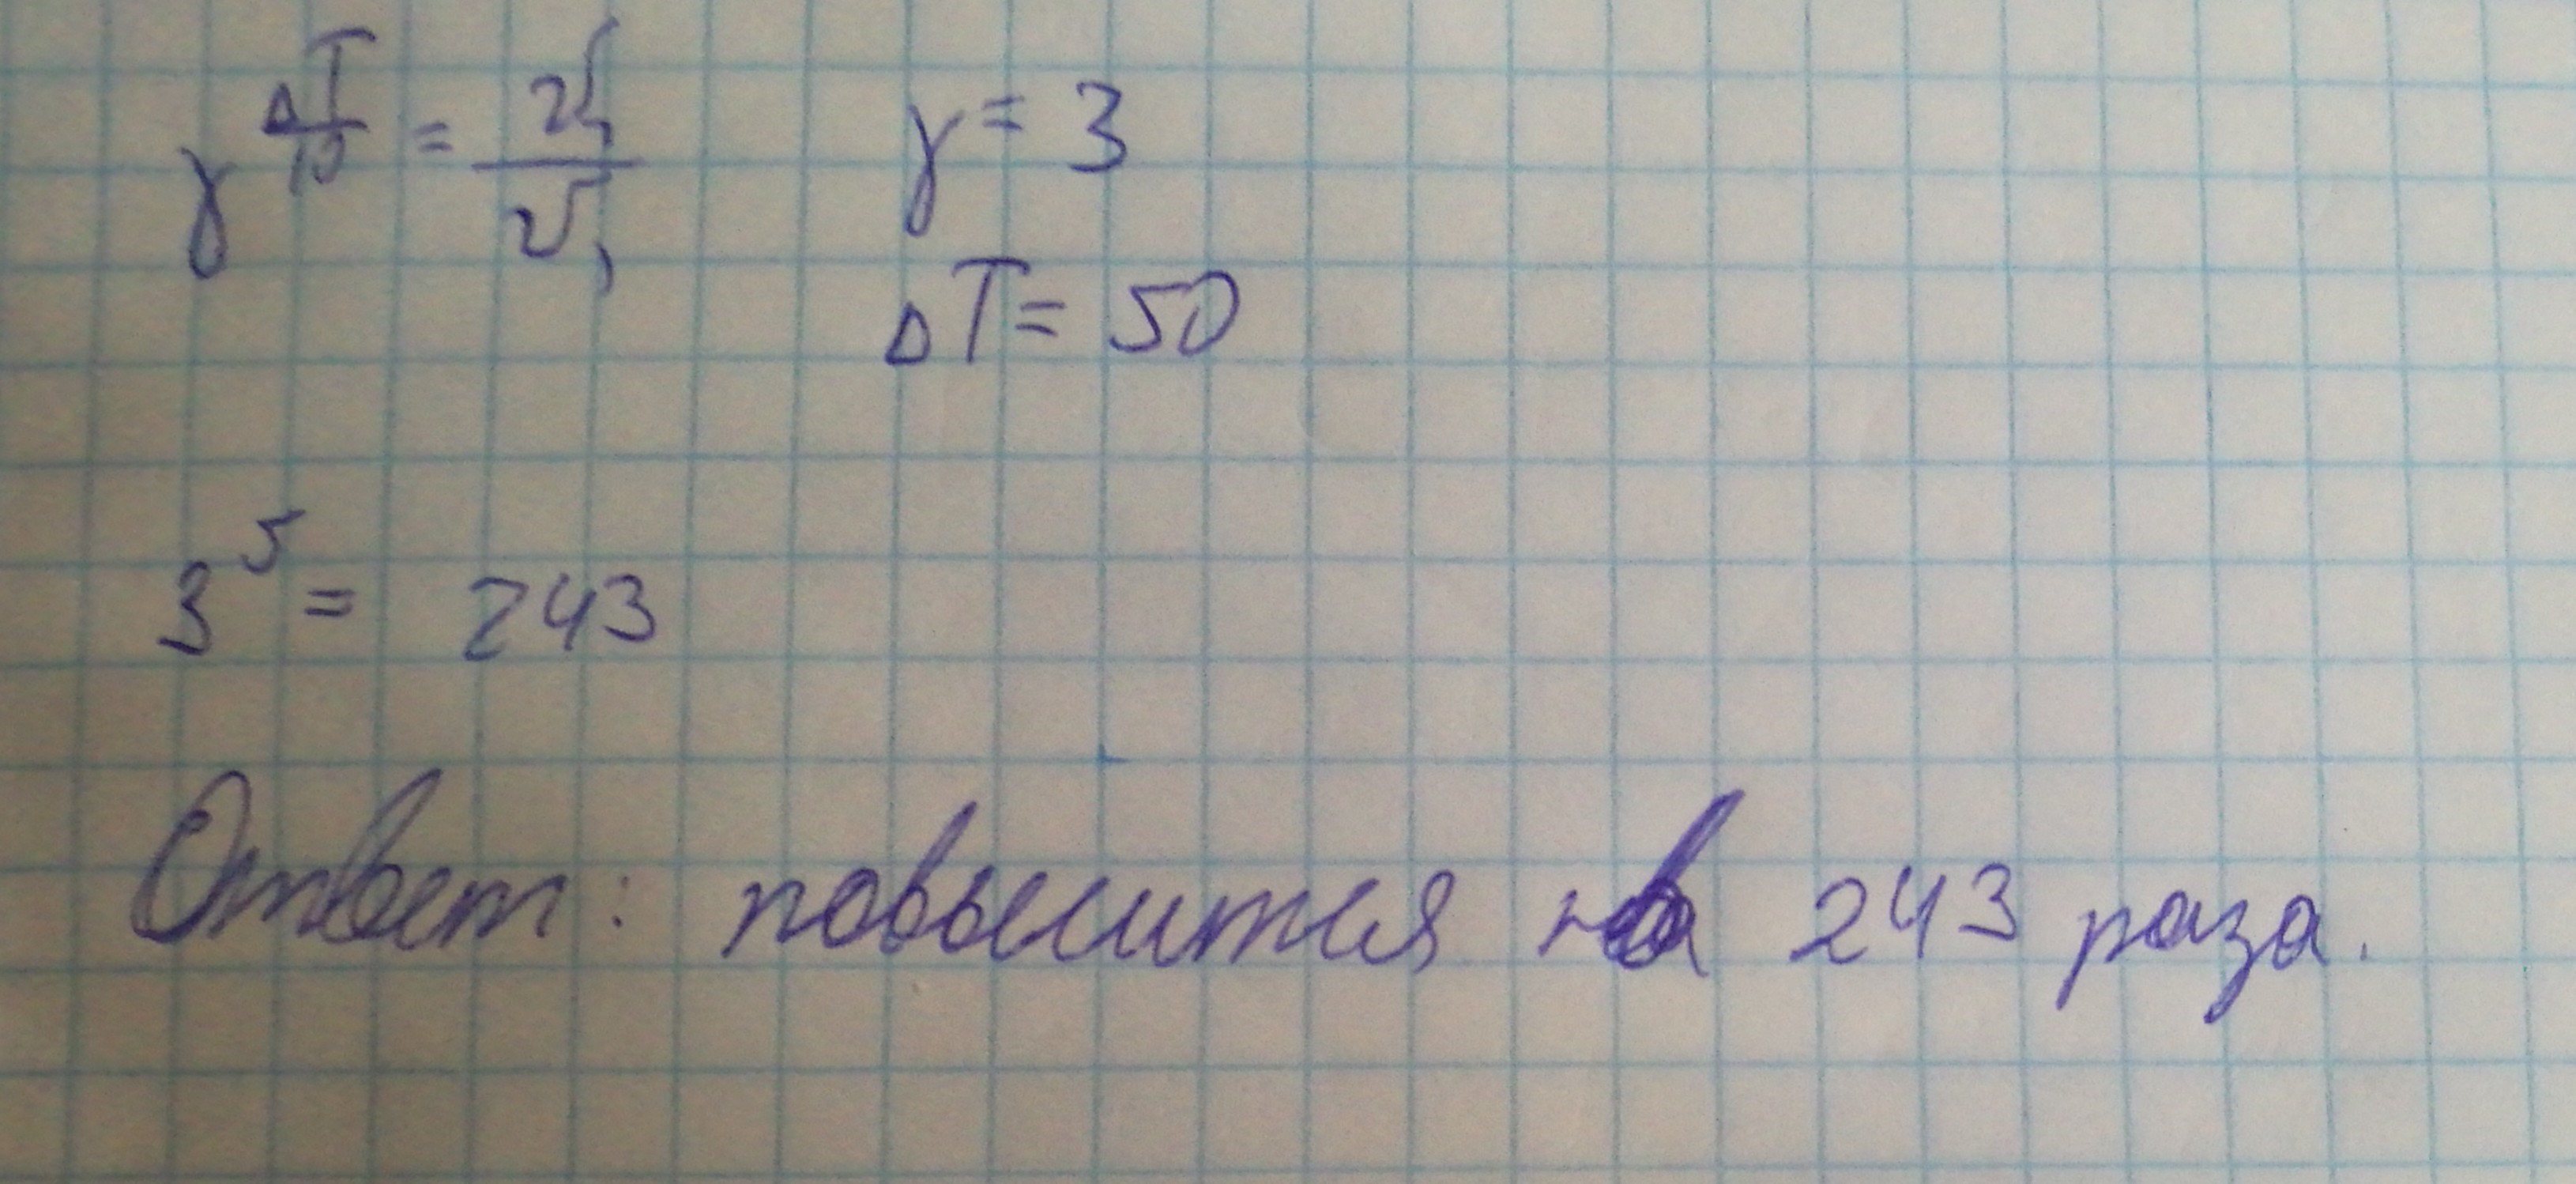 γ^(ΔT/10) = v₁/v₁ γ = 3
ΔT = 50
3⁵ = 243
Ответ: повысится в 243 раза.